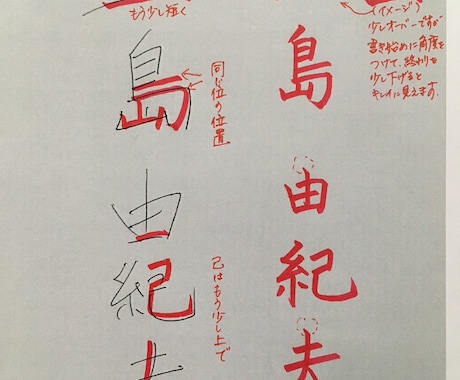 もう少し短く
(イメージ)
少しオーバーですが
書き始めに角度を
つけて、終わりを
少し下げると
キレイに見えます。
島
由
紀
夫
同じ位の位置
己はもう少し上で
島
由
紀
夫